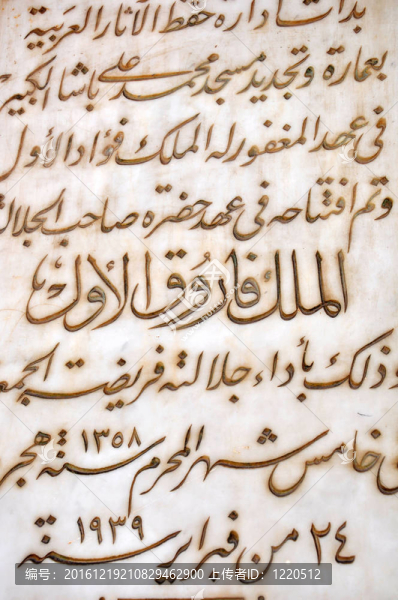 بدأت ادارة حفظ الآثار العربية
بعمارة وتجديد مسجد محمد على باشا الكبير
فى عهد المغفور له الملك فؤاد الأول
وتم افتتاحه فى عهد حضرة صاحب الجلالة
الملك فاروق الأول
وذلك بأداء جلالته فريضة الجمعة
فى خامس شهر المحرم سنة ١٣٥٨ هجرية
٢٤ من فبراير سنة ١٩٣٩
编号:20161219210829462900 上传者ID:1220512